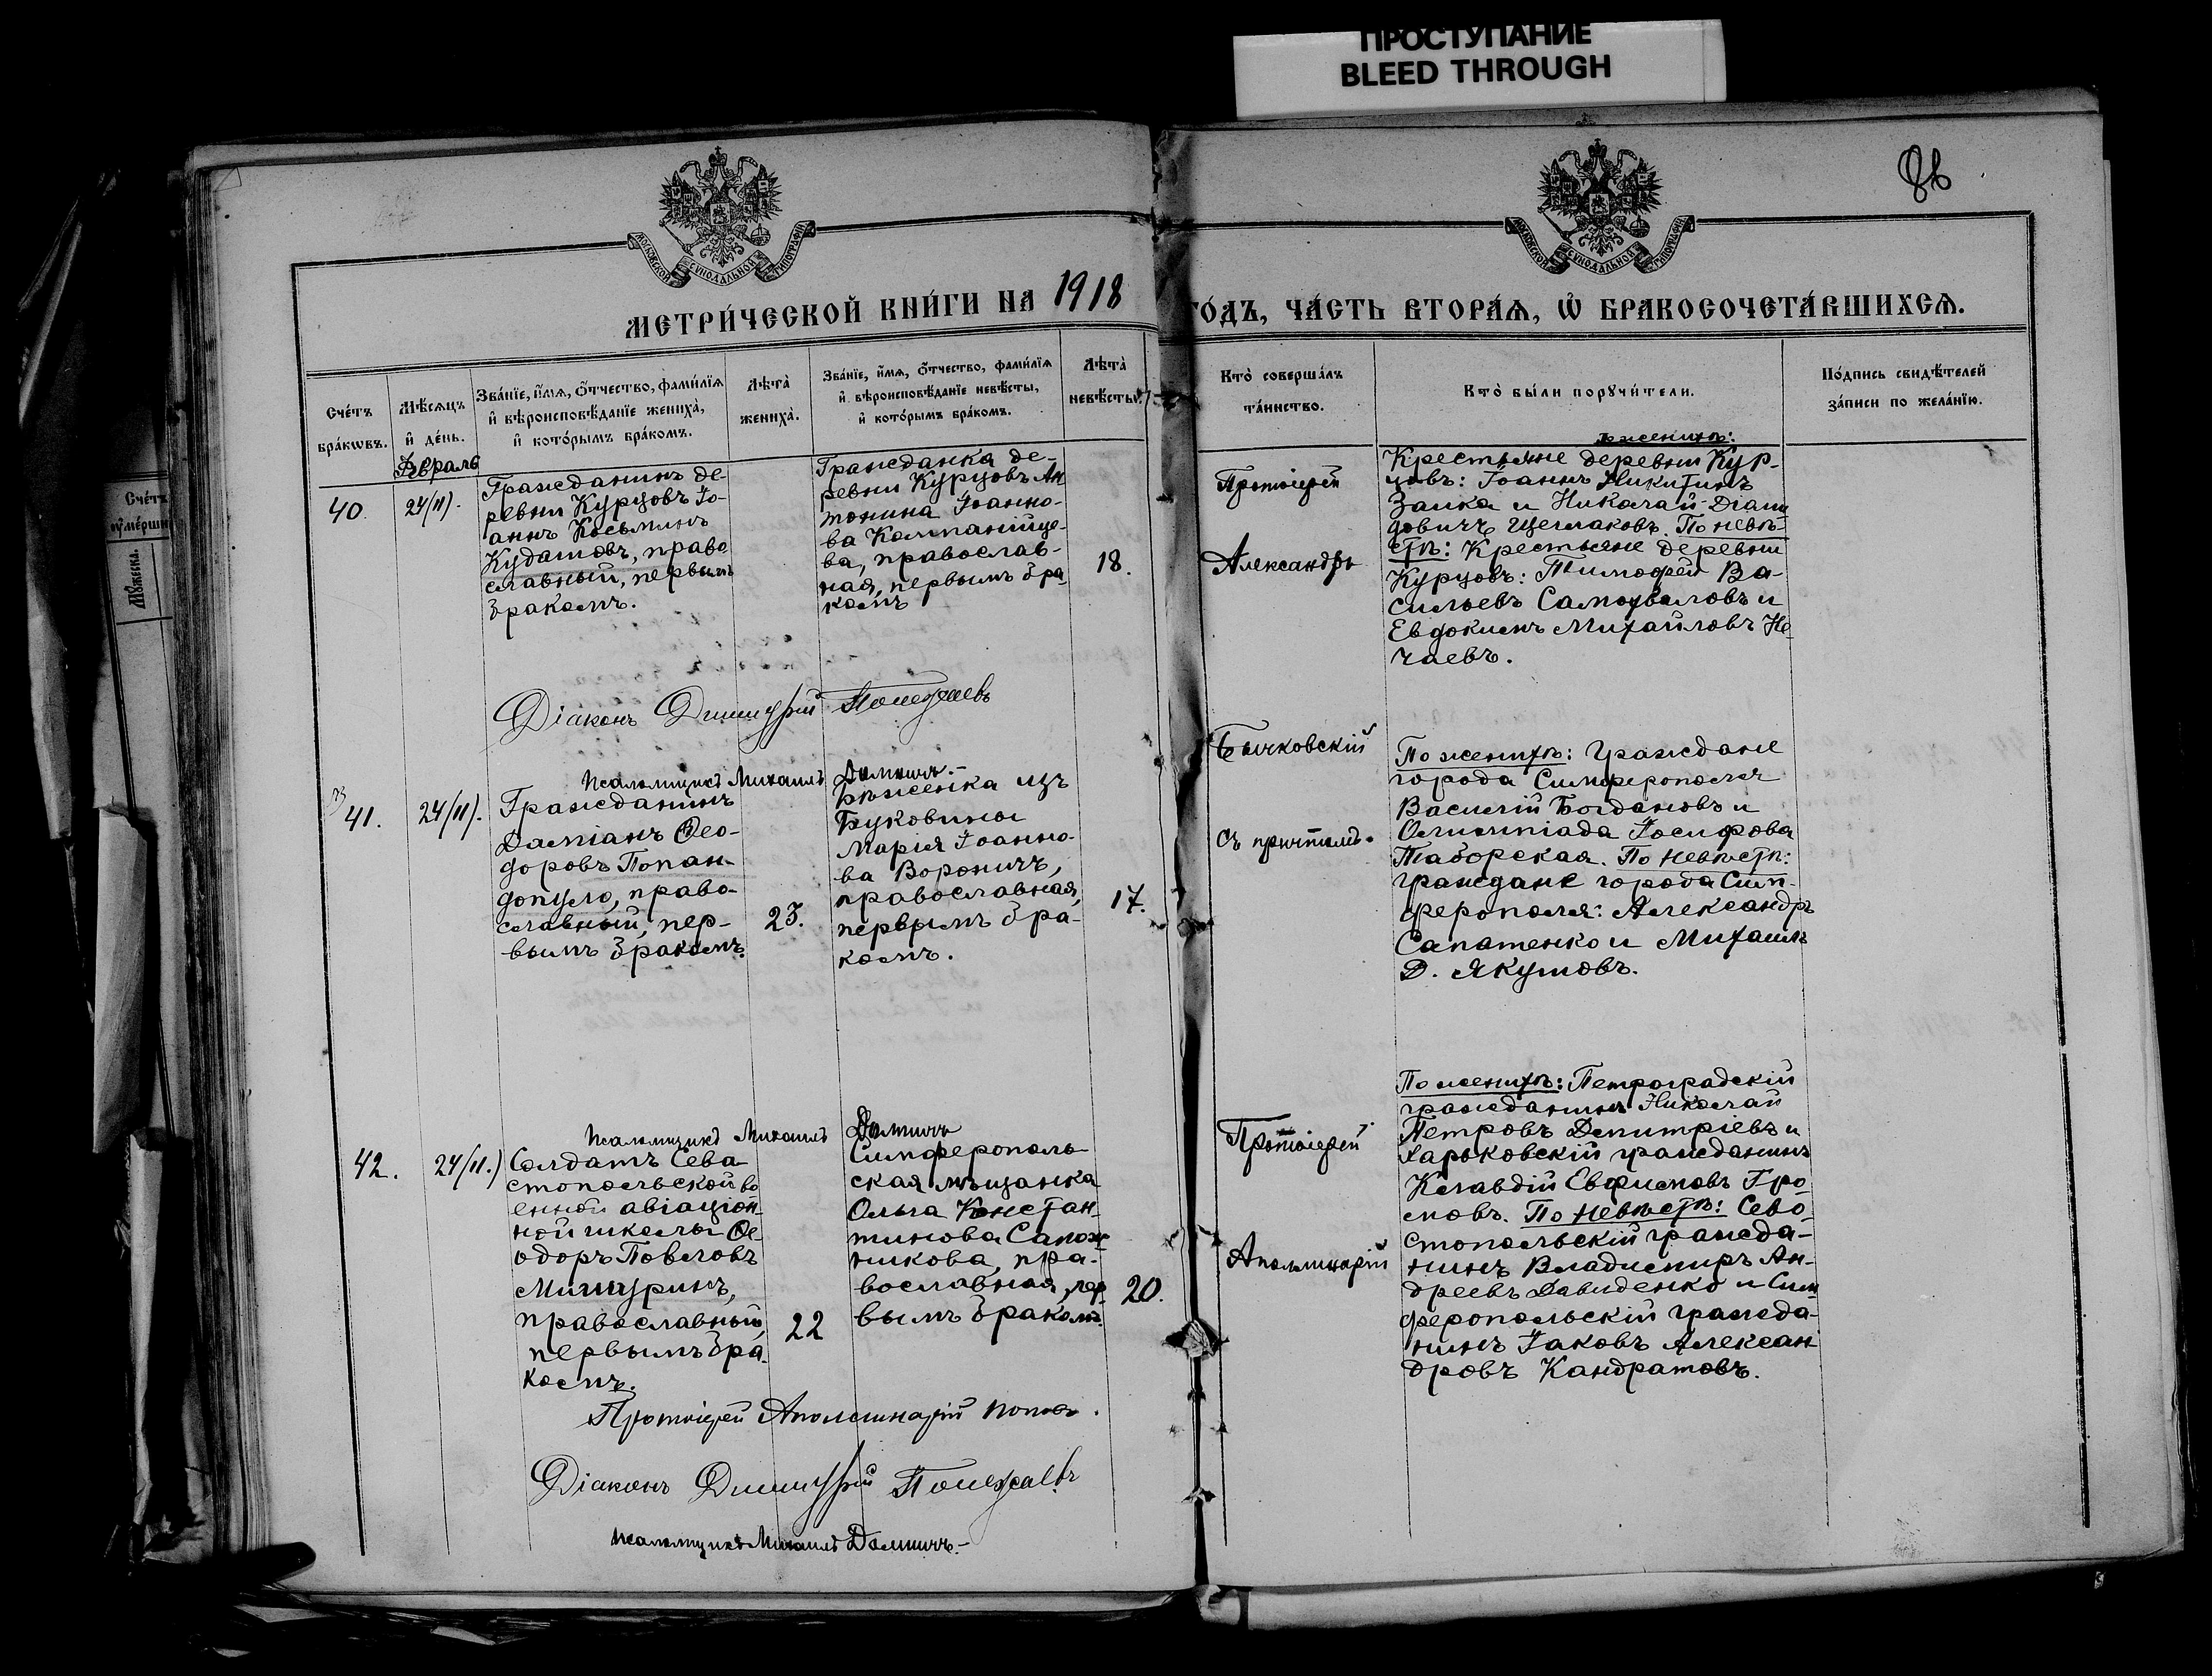 ПРОСТУПАНИЕ
BLEED THROUGH
86
МОСКОВСКОЙ СѴНОДАЛЬНОЙ ТИПОГРАФІИ
МОСКОВСКОЙ СѴНОДАЛЬНОЙ ТИПОГРАФІИ
МЕТРИ́ЧЕСКОЙ КНИ́ГИ НА 1918 ГО́ДЪ, ЧА́СТЬ ВТОРА́Ѧ, Ѡ҆ БРАКОСОЧЕТА́ВШИХСѦ.
Сче́тъ
бра́кѡвъ.
Мѣ́сѧцъ
и҆ де́нь.
Зва́нїе, и҆́мѧ, ѻ҆́тчество, фами́лїѧ
и҆ вѣроисповѣ́данїе жениха̀,
и҆ кото́рымъ бра́комъ.
Лѣта̀
жениха̀.
Зва́нїе, и҆́мѧ, ѻ҆́тчество, фами́лїѧ
и҆ вѣроисповѣ́данїе невѣ́сты,
и҆ кото́рымъ бра́комъ.
Лѣта̀
невѣ́сты.
Кто̀ соверша́лъ
та́инство.
Кто̀ бы́ли порꙋчи́тели.
По́дпись свидѣ́телей
за́писи по жела́нїю.
Февраль
40.
24/11).
Гражданинъ де-
ревни Курцовъ Іо-
аннъ Косьминъ
Кудатовъ, право
славный, первымъ
бракомъ.
Гражданка де-
ревни Курцовъ Ан
тонина Іоанно-
ва Компанійце-
ва, православ-
ная, первымъ бра-
комъ
18.
Протоіерей
Александръ
Бычковскій
съ причтомъ.
женихѣ:
Крестьяне деревни Кур-
цовъ: Іоаннъ Никитинъ
Заика и Николай Діами
довичъ Щемаковъ. По невѣ-
стѣ: Крестьяне деревни
Курцовъ: Тимофей Ва-
сильевъ Самохваловъ и
Евдокимъ Михайловъ Не-
чаевъ.
Діаконъ Димитрій Полежаевъ
Псаломщикъ Михаилъ Домничъ.-
41.
24/11).
Гражданинъ
Даміанъ Ѳео-
доровъ Попан-
допуло, право-
славный, пер-
вымъ бракомъ.
23.
Бѣженка изъ
Буковины
Марія Іоанно-
ва Вороничъ,
православная,
первымъ бра-
комъ.
17.
По женихѣ: Граждане
города Симферополя
Василій Богдановъ и
Олимпіада Іосифова
Таборская. По невѣстѣ:
граждане города Сим-
ферополя: Александръ
Сапатенко и Михаилъ
Д. Якутовъ.
Псаломщикъ Михаилъ Домничъ
42.
24/11.)
Солдатъ Сева-
стопольской во
енной авіаціон-
ной школы Ѳе
одоръ Повловъ
Мишуринъ,
православный,
первымъ бра-
комъ.
22
Симферополь
ская мѣщанка
Ольга Констан-
тинова Сапож-
никова, пра-
вославная, пер-
вымъ бракомъ.
20.
Протоіерей
Аполлинарій
По женихѣ: Петроградскій
гражданинъ Николай
Петровъ Димитріевъ и
Харьковскій гражданинъ
Клавдій Евфимовъ Гро-
мовъ. По невѣстѣ: Сево-
стопольскій гражда-
нинъ Владимиръ Ан-
дреевъ Давиденко и Сим
феропольскій гражда-
нинъ Іаковъ Алексан
дровъ Кандратовъ.
Протоіерей Аполлинарій Попов.
Діаконъ Димитрій Полежаевъ
Псаломщикъ Михаилъ Домничъ.-
Сче́тъ
Мꙋ́жеска.